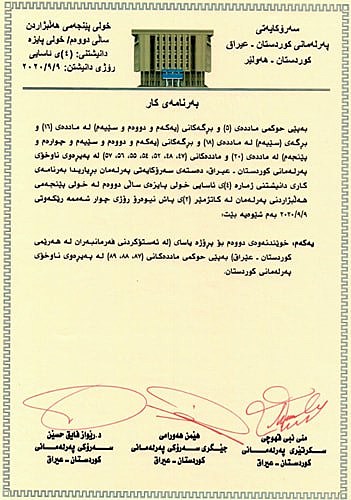 سەرۆکایەتی
پەرلەمانی کوردستان - عیراق
کوردستان - هەولێر
خولی پێنجەمی هەڵبژاردن
ساڵی دووەم/ خولی پایزە
دانیشتنی: (٤)ی ئاسایی
ڕۆژی دانیشتن: ٢٠٢٠/٩/٩
بەرنامەی کار
بەپێی حوکمی ماددەی (٥) و بڕگەکانی (یەکەم و دووەم و سێیەم) لە ماددەی (١٦) و
بڕگەی (سێیەم) لە ماددەی (١٨) و بڕگەکانی (یەکەم و دووەم و سێیەم و چوارەم و
پێنجەم) لە ماددەی (٢٠) و ماددەکانی (٤٧، ٤٨، ٥٢، ٥٤، ٥٥، ٥٦، ٥٧) لە پەیڕەوی ناوخۆی
پەرلەمانی کوردستان - عێراق، دەستەی سەرۆکایەتی پەرلەمان بڕیاریدا بەرنامەی
کاری دانیشتنی ژمارە (٤)ی ئاسایی خولی پایزەی ساڵی دووەم لە خولی پێنجەمی
هەڵبژاردنی پەرلەمان لە کاتژمێر (٢)ی پاش نیوەڕۆ ڕۆژی چوار شەممە ڕێکەوتی
٢٠٢٠/٩/٩ بەم شێوەیە بێت:
یەکەم: خوێندنەوەی دووەم بۆ پرۆژە یاسای (لە ئەستۆکردنی فەرمانبەران لە هەرێمی
کوردستان - عێراق) بەپێی حوکمی ماددەکانی (٨٧، ٨٨، ٨٩) لە پەیڕەوی ناوخۆی
پەرلەمانی کوردستان.
منی نبی قهوچی
سکرتێری پەرلەمانی
کوردستان - عیراق
هێمن هەورامی
جێگری سەرۆکی پەرلەمانی
کوردستان - عیراق
د. ڕێواز فایق حسێن
سەرۆکی پەرلەمانی
کوردستان - عیراق